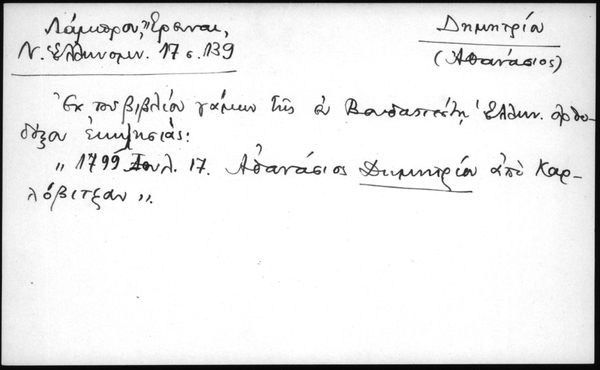 Λάμπρου, Ἔρευναι,
Ν. Ἑλληνομν. 17 σ. 139
Δημητρίου
(Ἀθανάσιος)
Ἐκ τοῦ βιβλίου γάμων τῆς ἐν Βουδαπέστῃ Ἑλλην. ὀρθο-
δόξου ἐκκλησίας:
„ 1799 Ἰουλ. 17. Ἀθανάσιος Δημητρίου ἀπὸ Καρ-
λόβιτζαν „.